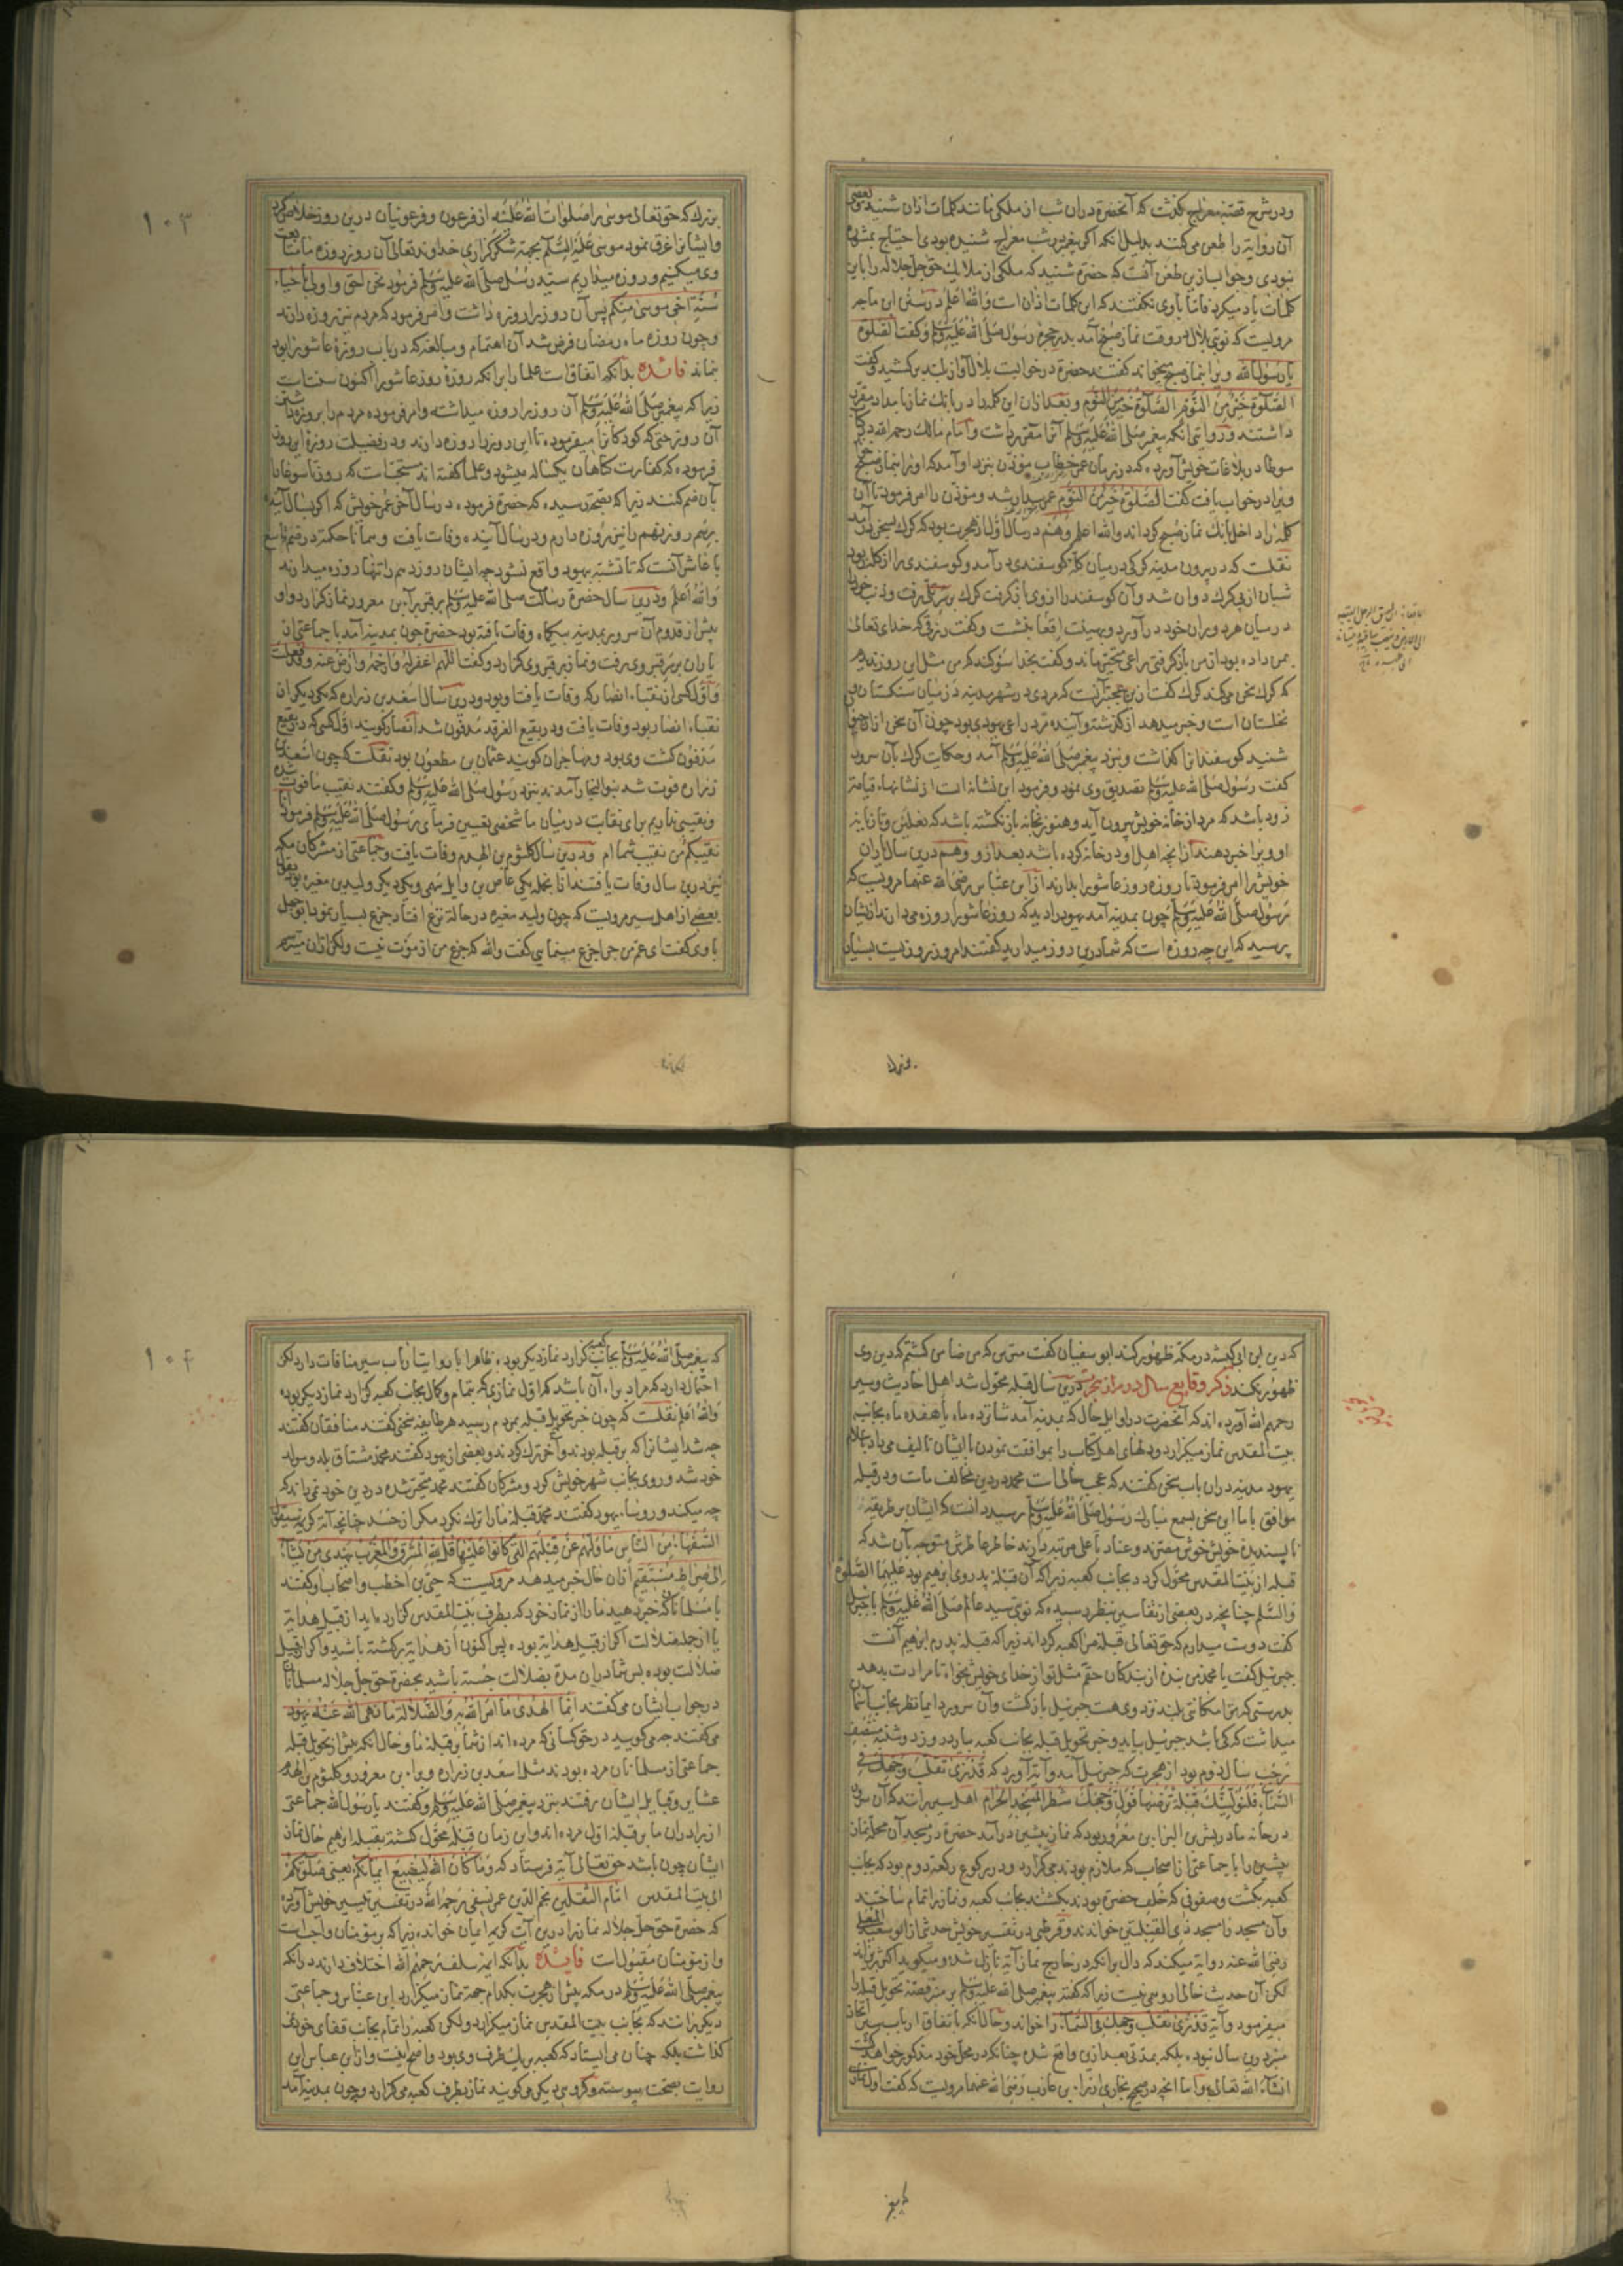 ودر شرح قصه معراج گذشت که آنحضرة دران شب از ملکی مانند کلمات اذان شنید بعضی
آن روایة را طعن می کنند بدلیل انکه اگر پیغمبر در شب معراج شنیده بودی احتیاج بمشوره
نبودی وجواب ازین طعن آنست که حضرة شنید که ملکی از ملایک حق جل جلاله را باین
کلمات یاد میکرد فاما با وی نگفتند که این کلمات اذان است والله اعلم درستی این ماجر
مرویست که نوبتی بلال در وقت نماز صبح آمد بدر حجره رسول صلی الله علیه وسلم وگفت الصلوة
یا رسول الله ویرا بنماز صبح بخواند گفتند حضرة در خوابست بلال آواز بلند بر کشید وگفت
الصلوة خیر من النوم الصلوة خیر من النوم وبعد ازان این کلمه را در بانک نماز بامداد مقرر
داشتند وروایتی انکه پیغمبر صلی الله علیه وسلم آنرا مقرر داشت وامام مالک رحمه الله در کتاب
موطا در بلاغات خویش آورده که در زمان عمر خطاب مؤذن بنزد او آمد که اورا بنماز صبح
ویرا در خواب یافت گفت الصلوة خیر من النوم عمر بیدار شد ومؤذن را امر فرمود تا آن
کلمه را داخل بانک نماز صبح گرداند والله اعلم وهم در سال اول از هجرت بود که گرک بسخن درآمد
نقلست که در بیرون مدینه گرکی درمیان کله گوسفندی درآمد وگوسفندی را از گله ربود
شبان از پی گرک دوان شد وآن گوسفند را از وی باز گرفت گرک بر سر تلی رفت ودنب خود
درمیان هر دو ران خود درآورد وبهیئت اقعا بنشست وگفت رزقی که خدای تعالی
بمن داده بود از من باز گرفتی راعی متحیر بماند وگفت بخدا سوگند که من مثل این روز ندیدم
که گرک سخن می کند گرک گفت ازین عجبتر آنست که مردی در شهر مدینه درمیان سنگستان
نخلستان است وخبر میدهد از گذشته وآینده مرد راعی یهودی بود چون آن سخن ازان
شنید گوسفندانرا بگذاشت وبنزد پیغمبر صلی الله علیه وسلم آمد وحکایت گرک بآن سرور
گفت رسول صلی الله علیه وسلم تصدیق وی نمود وفرمود این نشانه است از نشانها قیامة
زود باشد که مرد از خانه خویش بیرون آید وهنوز بخانه باز نگشته باشد که نعلین وتازیانه
او ویرا خبر دهند از انچه اهل او در خانه کرده باشد بعد از و وهم درین سال یاران
خویش را امر فرمود تا روزه روز عاشورا بدارند از ابن عباس رضی الله عنهما مرویست که
رسول صلی الله علیه وسلم چون بمدینه آمد یهود را دید که روز عاشورا روزه می دارند از ایشان
پرسید که این چه روزه است که شما درین روز میدارید گفتند امروز روزیست بسیار
وبزرک
بزرک که حق تعالی موسی را صلوات الله علیه از فرعون وفرعونیان درین روز خلاص کرد
وایشانرا غرق نمود موسی علیه السلم بجهة شکر گزاری خداوند تعالی آن روز روزه داشت ما متابعت
وی میکنیم وروزه میداریم سید رسل صلی الله علیه وسلم فرمود نحن احق واولی باحیاء
سنة اخی موسی منکم پس آن روز را روزه داشت وامر فرمود که مردم نیز روزه دارند
وچون روزه ماه رمضان فرض شد آن اهتمام ومبالغه که در باب روزه عاشورا بود
نماند فائده بدانکه اتفاقست علما را برانکه روزه روز عاشورا اکنون سنت است
زیرا که پیغمبر صلی الله علیه وسلم آن روز را روزه میداشت وامر فرموده مردم را بروزه داشتن
آن روز حتی که کودکانرا میفرموده تا این روز را روزه دارند ودر فضیلت روزه این روز
فرموده که کفارت گناهان یکساله میشود وعلما گفته اند مستحبست که روز تاسوعا را
بآن ضم کنند زیرا که بصحة رسیده که حضرة فرموده در سال آخر عمر خویش که اگر بسال آینده
برسم روز نهم را نیز روزه دارم ودر سال آینده وفات یافت وهمانا حکمة در ضم تاسع
با عاشر آنست که تا تشبه بیهود واقع نشود چه ایشان روز دهم را تنها روزه میدارند
والله اعلم ودرین سال حضرة رسالت صلی الله علیه وسلم بر قبر براء بن معرور نماز گزارد واو
پیش از قدوم آن سرور بمدینه بیکماه وفات یافته بود حضرة چون بمدینه آمد با جماعتی از
یاران بر سر قبر وی رفت ونماز بر قبر وی گزارد وگفت اللهم اغفر له وارحمه وارض عنه وقد فعلت
واول کسی از نقباء انصار که وفات یافت او بود ودرین سال اسعد بن زراره که یکی دیگر از
نقباء انصار بود وفات یافت ودر بقیع الغرقد مدفون شد انصار گویند اول کسی که در بقیع
مدفون گشت وی بود ومهاجران گویند عثمان بن مظعون بود نقلست که چون اسعد بن
زراره فوت شد بنو النجار آمدند بنزد رسول صلی الله علیه وسلم وگفتند نقیب ما فوت شده
ونقیبی نداریم برای نقابت درمیان ما شخصی تعیین فرمای رسول صلی الله علیه وسلم فرمود انا
نقیبکم من نقیب شما ام ودرین سال کلثوم بن الهدم وفات یافت وجماعتی از مشرکان مکه
نیز درین سال وفات یافتند ازانجمله یکی عاص بن وایل سهمی ویکی دیگر ولید بن مغیره بود نقل
بعضی از اهل سیر مرویست که چون ولید مغیره در حالة نزع افتاد جزع بسیار نمود ابو جهل
با وی گفت ای عم من چرا جزع مینمایی گفت والله که جزع من از موت نیست ولکن ازان میترسم
که دین ابن ابی کبشه در مکه ظهور کند ابو سفیان گفت مترس که من ضامن گشتم که دین وی
ظهور نکند ذکر وقایع سال دوم از هجرت درین سال قبله محول شد اهل احادیث وسیر
رحمهم الله آورده اند که آنحضرت در اوایل حال که بمدینه آمد شانزده ماه یا هفده ماه بجانب
بیت المقدس نماز میگزارد ودلهای اهل کتاب را بموافقت نمودن با ایشان تالیف می داد باسلام
یهود مدینه دران باب سخن گفتند که عجب حالی است محمد در دین مخالف ماست ودر قبله
موافق با ما این سخن بسمع مبارک رسول صلی الله علیه وسلم رسید دانست که ایشان بر طریقه
ناپسندیده خویش مصرند وعناد باعلی مرتبه دارند خاطر عاطرش متوجه بآن شد که
قبله از بیت المقدس محول گردد بجانب کعبه زیرا که آن قبله پدر وی ابرهیم بود علیهما الصلوة
والسلم چنانچه در بعضی از تفاسیر بنظر رسیده که نوبتی سید عالم صلی الله علیه وسلم با جبرئیل
گفت دوست میدارم که حق تعالی قبله مرا کعبه گرداند زیرا که قبله پدرم ابرهیم آنست
جبرئیل گفت یا محمد من بنده از بندگان حقم مثل تو از خدای خویش بخواه تا مرادت بدهد
بدرستی که ترا مکانتی بلند نزد وی هست جبرئیل بازگشت وآن سرور دایما نظر بجانب آسمان
میداشت که کی باشد جبرئیل بیاید وخبر تحویل قبله بجانب کعبه بیارد روز دوشنبه منتصف
رجب سال دوم بود از هجرت که جبرئیل آمد وآیة آورد که قد نری تقلب وجهک فی
السماء فلنولینک قبلة ترضیها فول وجهک شطر المسجد الحرام اهل سیر برانند که آن سرور
در خانه مادر بشر بن البراء بن معرور بود که نماز پیشین درآمد حضرة در مسجد آن محله نماز
پیشین را با جماعتی از اصحاب که ملازم بودند می گزارد ودر رکوع رکعة دوم بود که بجانب
کعبه بگشت وصفوفی که خلف حضرة بودند بگشتند بجانب کعبه ونماز را تمام ساختند
وآن مسجد را مسجد ذی القبلتین خواندند وقرطبی در تفسیر خویش حدیثی از ابو سعید المعلی
رضی الله عنه روایة میکند که دال برانکه در خارج نماز آیة نازل شده ومیگوید اکثر برانند
لکن آن حدیث خالی از وهنی نیست زیرا که گفته پیغمبر صلی الله علیه وسلم بر منبر قصه تحویل قبله را
میفرمود وآیة قد نری تقلب وجهک فی السماء را خواند وحال انکه باتفاق ارباب سیر اتخاذ
منبر درین سال نبوده بلکه بمدتی بعد ازین واقع شده چنانکه در محل خود مذکور خواهد گشت
انشاء الله تعالی واما انچه در صحیح بخاری از براء بن عازب رضی الله عنهما مرویست که گفت اول نماز
که پیغمبر صلی الله علیه وسلم بجانب کعبه گزارد نماز دیگر بود ظاهرا با روایت ارباب سیر منافات دارد لکن
احتمال دارد که مراد براء آن باشد که اول نمازی که بتمام وکمال بجانب کعبه گزارد نماز دیگر بوده
والله اعلم نقلست که چون خبر تحویل قبله بمردم رسید هر طایفه سخنی گفتند منافقان گفتند
چه شد ایشانرا که بر قبله بودند وآخر ترک کردند وبعضی از یهود گفتند محمد مشتاق بلد ومولد
خود شد وروی بجانب شهر خویش کرد ومشرکان گفتند محمد متحیر شده در دین خود نمی داند که
چه میکند ورؤساء یهود گفتند محمد قبله ما را ترک نکرد مگر از حسد چنانچه آیة کریمه سیقول
السفهاء من الناس ما ولیهم عن قبلتهم التی کانوا علیها قل لله المشرق والمغرب یهدی من یشاء
الی صراط مستقیم ازان حال خبر میدهد مرویست که حیی بن اخطب واصحاب او گفتند
با مسلمانان که خبر دهید ما را از نماز خود که بطرف بیت المقدس گزارده اید از قبیل هدایة
یا از جمله ضلالت اگر از قبیل هدایة بوده پس اکنون از هدایة برگشته باشید واگر از قبیل
ضلالت بوده پس شما دران مدة بضلالت جسته باشید بحضرة حق جل جلاله مسلمانان
در جواب ایشان می گفتند انما الهدی ما امر الله به والضلالة ما نهی الله عنه یهود
می گفتند چه می گویید در حق کسانی که مرده اند از شما بر قبله ما وحال انکه پیش از تحویل قبله
جماعتی از مسلمانان مرده بودند مثل اسعد بن زراره وبراء بن معرور وکلثوم بن الهدم
عشایر وقبایل ایشان رفتند بنزد پیغمبر صلی الله علیه وسلم وگفتند یا رسول الله جماعتی
از برادران ما بر قبله اول مرده اند واین زمان قبله محول گشته بقبله ابرهیم حال نماز
ایشان چون باشد حق تعالی آیة فرستاد که وما کان الله لیضیع ایمانکم یعنی صلوتکم
الی بیت المقدس امام الثقلین نجم الدین عمر نسفی رحمه الله در تفسیر تیسیر خویش آورده
که حضرة حق جل جلاله نماز را درین آیت کریمه ایمان خوانده زیرا که بر مؤمنان واجبست
واز مؤمنان مقبولست فائده بدانکه ایمه سلف رحمهم الله اختلاف دارند درانکه
پیغمبر صلی الله علیه وسلم در مکه پیش از هجرت بکدام جهة نماز میگزارد ابن عباس وجماعتی
دیگر برانند که بجانب بیت المقدس نماز میگزارد ولکن کعبه را تمام بجانب قفای خود نمی
گذاشت بلکه چنان می ایستاد که کعبه بر یک طرف وی بود واصح اینست واز ابن عباس این
روایت بصحت پیوسته وگروهی دیگر می گویند نماز بطرف کعبه می گزارد وچون بمدینه آمد
۱۰۳
۱۰۴